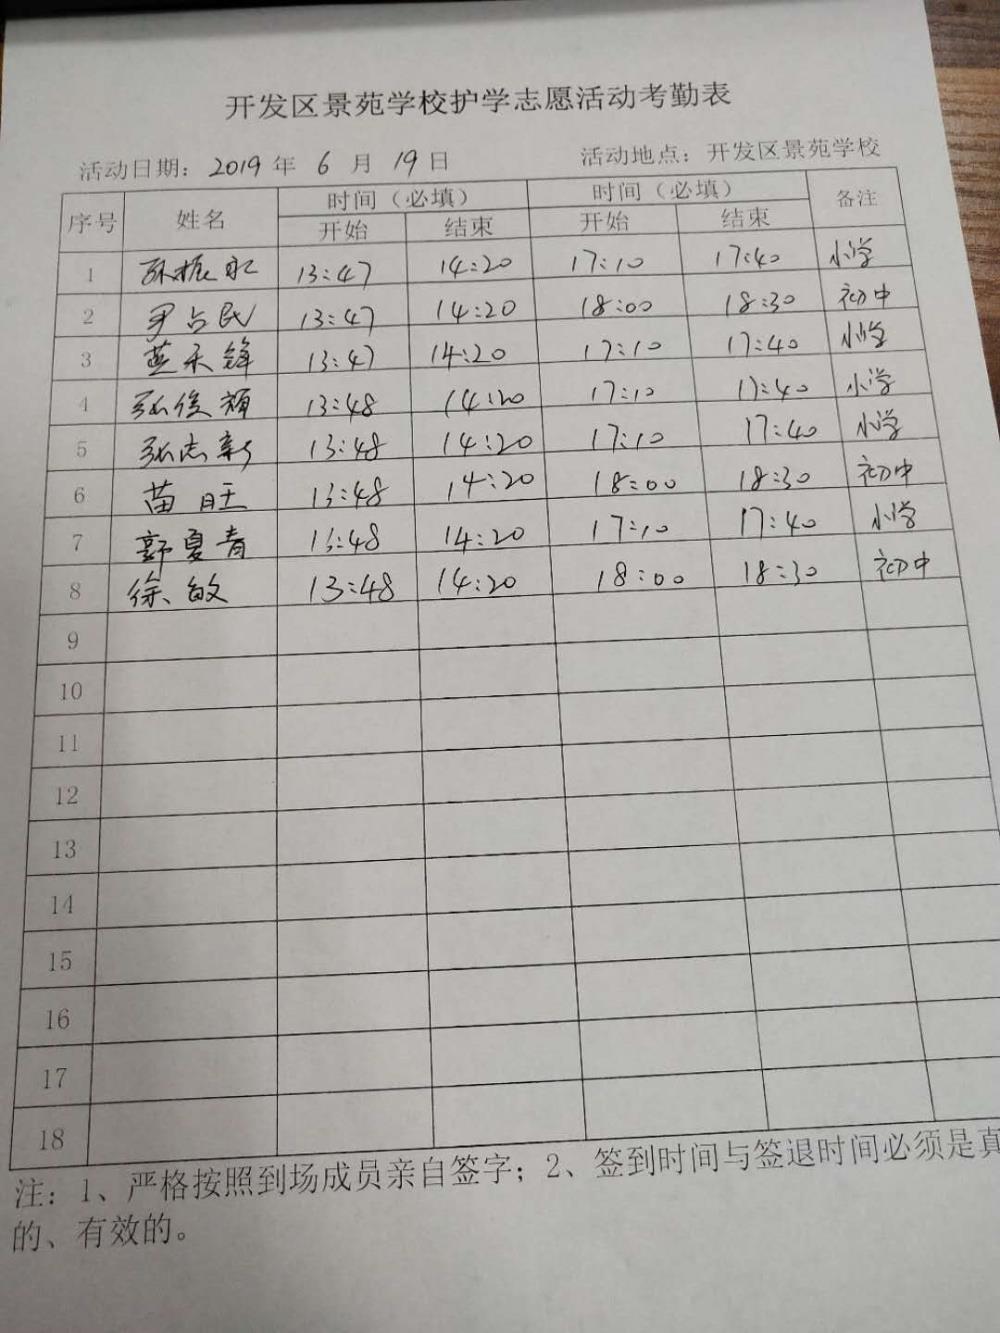 开发区景苑学校护学志愿活动考勤表
活动日期：2019年 6 月 19日 活动地点：开发区景苑学校
序号 姓名 时间（必填） 时间（必填） 备注
开始 结束 开始 结束
1 孙振水 13:47 14:20 17:10 17:40 小学
2 尹占民 13:47 14:20 18:00 18:30 初中
3 燕禾锋 13:47 14:20 17:10 17:40 小学
4 张俊颖 13:48 14:20 17:10 17:40 小学
5 张志新 13:48 14:20 17:10 17:40 小学
6 苗旺 13:48 14:20 18:00 18:30 初中
7 郭夏青 13:48 14:20 17:10 17:40 小学
8 徐敏 13:48 14:20 18:00 18:30 初中
9
10
11
12
13
14
15
16
17
18
注：1、严格按照到场成员亲自签字；2、签到时间与签退时间必须是真
的、有效的。